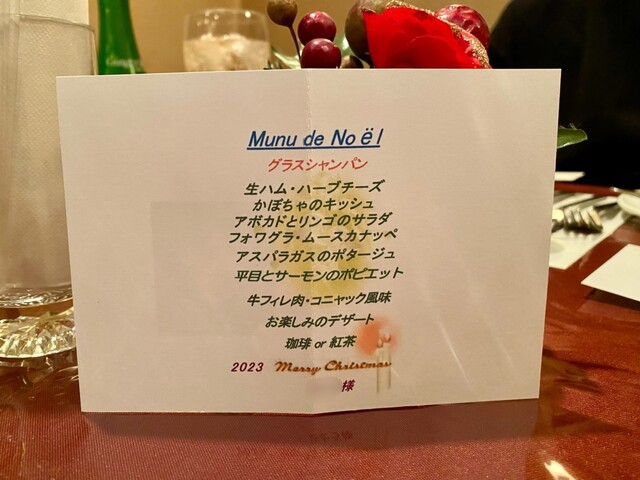 Munu de Noël
グラスシャンパン
生ハム・ハーブチーズ
かぼちゃのキッシュ
アボカドとリンゴのサラダ
フォワグラ・ムースカナッペ
アスパラガスのポタージュ
平目とサーモンのポピエット
牛フィレ肉・コニャック風味
お楽しみのデザート
珈琲 or 紅茶
2023 Merry Christmas
様